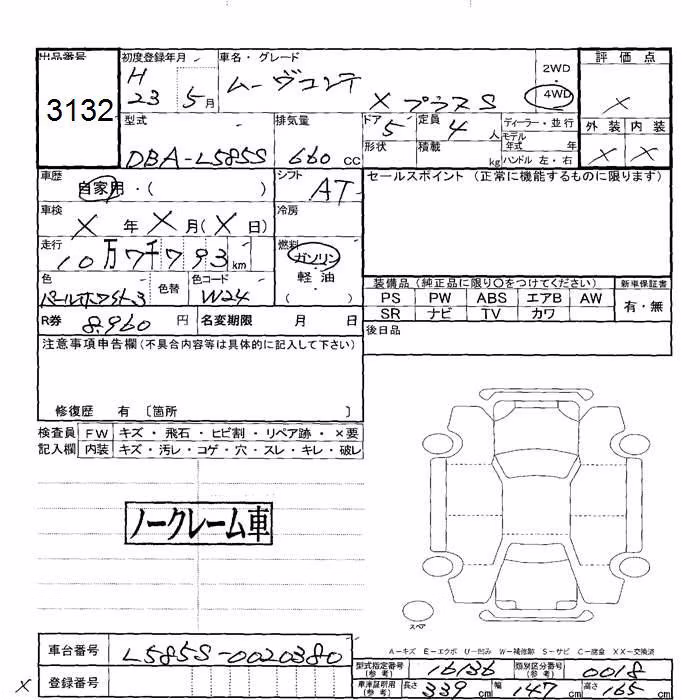 出品番号
3132
初度登録年月
H
23 5月
車名・グレード
ムーヴコンテ
X プラスS
2WD
・
4WD
評価点
X
外装 内装
X X
型式
DBA-L585S
排気量
660 cc
ドア
5
定員
4 人
ディーラー・並行
モデル
年式 年
形状
積載
kg
ハンドル 左・右
車歴
自家用・( )
シフト
AT
セールスポイント (正常に機能するものに限ります)
車検
X 年 X 月 (X 日)
冷房
走行
10万7千793 km
燃料
ガソリン
・
軽・油
( )
色
パールホワイト3
色替
色コード
W24
装備品 (純正品に限り○をつけてください)
新車保証書
PS PW ABS エアB AW
SR ナビ TV カワ
有・無
R券 8.960 円
名変期限 月 日
後日品
注意事項申告欄(不具合内容等は具体的に記入して下さい)
修復歴 有 〔箇所 〕
検査員
記入欄
FW キズ・飛石・ヒビ割・リペア跡・×要
内装 キズ・汚レ・コゲ・穴・スレ・キレ・破レ
ノークレーム車
スペア
A−キズ E−エクボ U−凹み W−補修跡 S−サビ C−腐食 XX−交換済
車台番号
L585S-0020380
X
登録番号
型式指定番号
(参考)
16136
類別区分番号
(参考)
0018
車庫証明用
(参考)
長さ 339 cm 幅 147 cm 高さ 165 cm